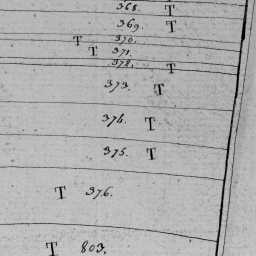 368. T
369. T
T 370.
T 371.
372. T
373. T
374. T
375. T
T 376.
T 803.